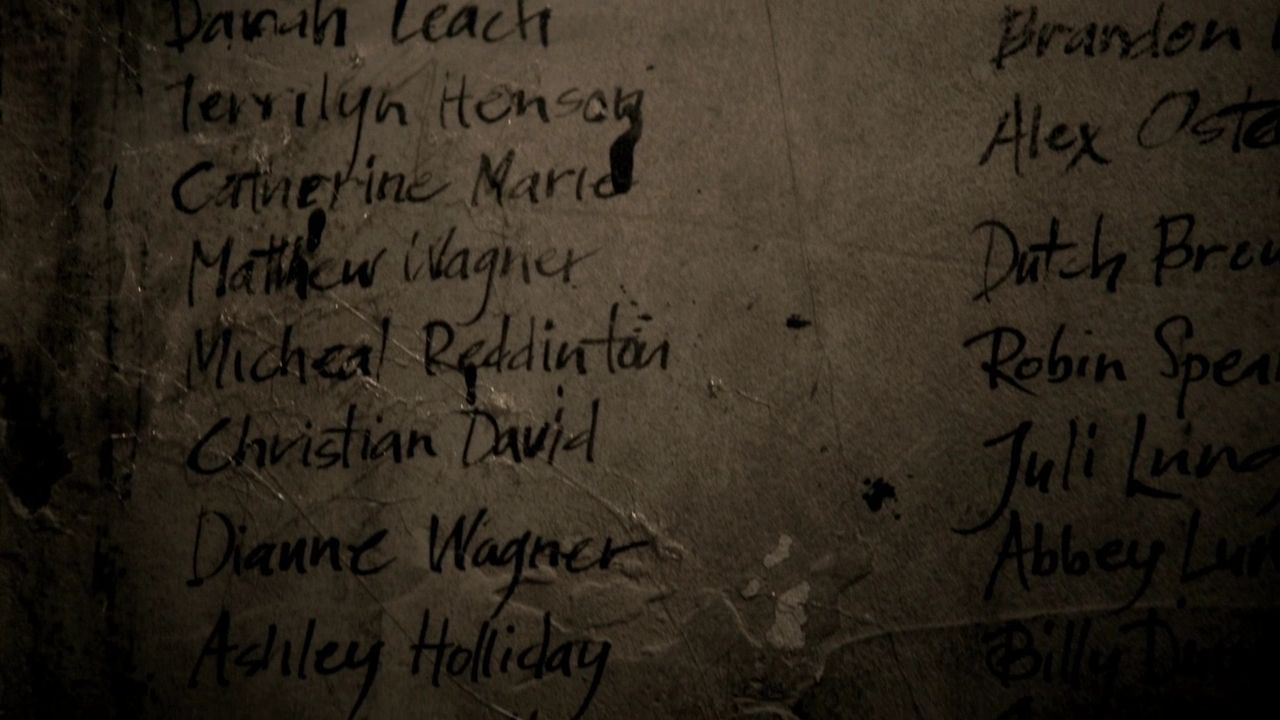 Danah Leach
Terrilyn Henson
Catherine Marie
Matthew Wagner
Micheal Reddinton
Christian David
Dianne Wagner
Ashley Holliday
Brandon
Alex
Dutch
Robin
Juli
Abbey
Billy